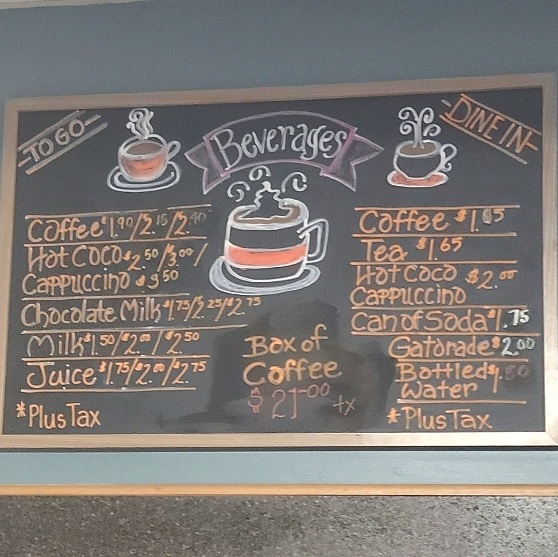 TO GO
Beverages
DINE IN
Coffee $1.90/2.15/2.40
Hot Coco $2.50/3.00/
Cappuccino $3.50
Chocolate Milk $1.75/2.25/$2.75
Milk $1.50/$2.00/$2.50
Juice $1.75/$2.00/$2.75
*Plus Tax
Box of
Coffee
$21.00 tx
Coffee $1.85
Tea $1.65
Hot Coco $2.00
Cappuccino
Can of Soda $1.75
Gatorade $2.00
Bottled $1.50
Water
*Plus Tax